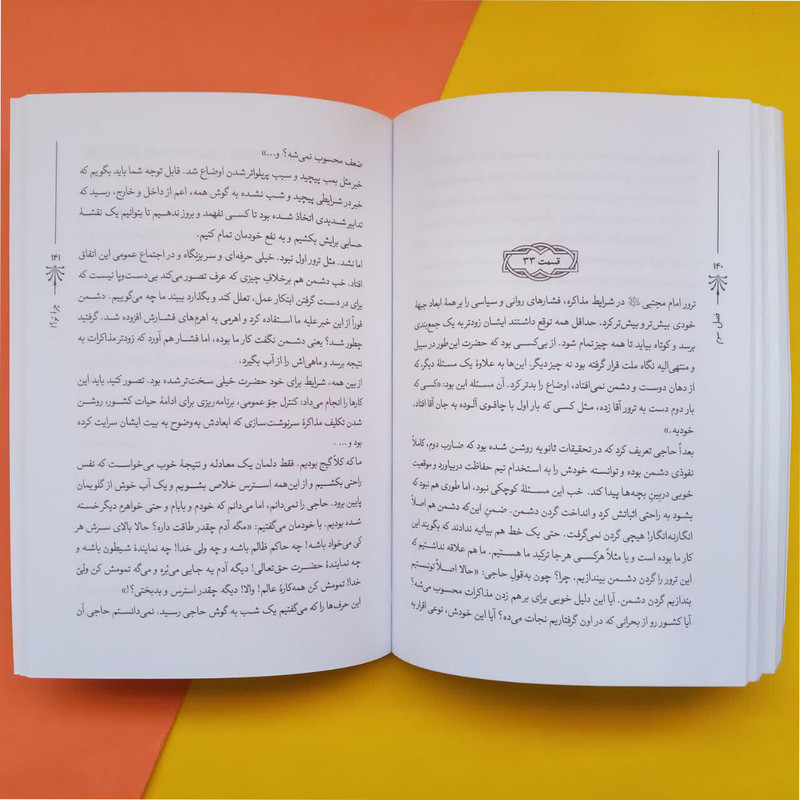 ۱۴۰
فصل سوم
قسمت ۳۳
ترور امام مجتبی در شرایط مذاکره، فشارهای روانی و سیاسی را بر همهٔ ابعاد جبههٔ
خودی بیش‌تر و بیش‌تر کرد. حداقل همه توقع داشتند ایشان زودتر به یک جمع‌بندی
برسد و کوتاه بیاید تا همه چیز تمام شود. از بی‌کسی بود که حضرت این‌طور در سیل
و منتهی‌الیه نگاه ملت قرار گرفته بود نه چیز دیگر. این‌ها به علاوهٔ یک مسئلهٔ دیگر، که
از دهان دوست و دشمن نمی‌افتاد، اوضاع را بدتر کرد. آن مسئله این بود: «کسی که
بار دوم دست به ترور آقا زده، مثل کسی که بار اول با چاقوی آلوده به جان آقا افتاد،
خودیه.»
بعداً حاجی تعریف کرد که در تحقیقات ثانویه روشن شده بود که ضارب دوم، کاملاً
نفوذی دشمن بوده و توانسته خودش را به استخدام تیم حفاظت دربیاورد و موقعیت
خوبی دربین بچه‌ها پیدا کند. خب این مسئلهٔ کوچکی نبود، اما طوری هم نبود که
بشود به راحتی اثباتش کرد و انداخت گردن دشمن. ضمن این‌که دشمن هم اصلاً
انگارنه‌انگار! هیچی گردن نمی‌گرفت. حتی یک خط هم بیانیه ندادند که بگویند این
کار ما بوده است و یا مثلاً هرکسی هرجا ترکید ما هستیم. ما هم علاقه نداشتیم که
این ترور را گردن دشمن بیندازیم. چرا؟ چون به‌قول حاجی: «حالا اصلاً تونستیم
بندازیم گردن دشمن. آیا این دلیل خوبی برای بر هم زدن مذاکرات محسوب می‌شه؟
آیا کشور رو از بحرانی که در اون گرفتاریم نجات می‌ده؟ آیا این خودش، نوعی اقرار به
۱۴۱
چرا تو؟!
ضعف محسوب نمی‌شه؟ و...»
خبر مثل بمب پیچید و سبب پریلواتر شدن اوضاع شد. قابل توجه شما باید بگویم که
خبر در شرایطی پیچید و شب نشده به گوش همه، اعم از داخل و خارج، رسید که
تدابیر شدیدی اتخاذ شده بود تا کسی نفهمد و بروز ندهیم تا بتوانیم یک نقشهٔ
حسابی برایش بکشیم و به نفع خودمان تمام کنیم.
اما نشد. مثل ترور اول نبود. خیلی حرفه‌ای و سربزنگاه و در اجتماع عمومی این اتفاق
افتاد. خب دشمن هم برخلاف چیزی که عرف تصور می‌کند بی‌دست‌وپا نیست که
برای در دست گرفتن ابتکار عمل، تعلل کند و بگذارد ببیند ما چه می‌گوییم. دشمن
فوراً از این خبر علیه ما استفاده کرد و اهرمی به اهرم‌های فشارش افزوده شد. گرفتید
چطور شد؟ یعنی دشمن نگفت کار ما بوده، اما فشار هم آورد که زودتر مذاکرات به
نتیجه برسد و ماهی‌اش را از آب بگیرد.
از بین همه، شرایط برای خود حضرت خیلی سخت‌تر شد. تصور کنید باید این
کارها را انجام می‌داد: کنترل جوّ عمومی، برنامه‌ریزی برای ادامهٔ حیات کشور، روشن
شدن تکلیف مذاکرهٔ سرنوشت‌سازی که ابعادش به‌وضوح به بیت ایشان سرایت کرده
بود و... .
ما که کلاً گیج بودیم. فقط دلمان یک معادله و نتیجهٔ خوب می‌خواست که نفس
راحتی بکشیم و از این‌همه استرس خلاص بشویم و یک آب خوش از گلویمان
پایین برود. حاجی را نمی‌دانم، اما می‌دانم که خودم و بابام و حتی خواهرم دیگر خسته
شده بودیم. با خودمان می‌گفتیم: «مگه آدم چقدر طاقت داره؟ حالا بالای سرش هر
کی می‌خواد باشه! چه حاکم ظالم باشه و چه ولی خدا! چه نمایندهٔ شیطون باشه و
چه نمایندهٔ حضرت حق‌تعالی! دیگه آدم یه جایی می‌بُره و می‌گه تمومش کن ولیّ
خدا! تمومش کن همه‌کارهٔ عالم! والا! دیگه چقدر استرس و بدبختی؟!»
این حرف‌ها را که می‌گفتیم یک شب به گوش حاجی رسید. نمی‌دانستم حاجی آن